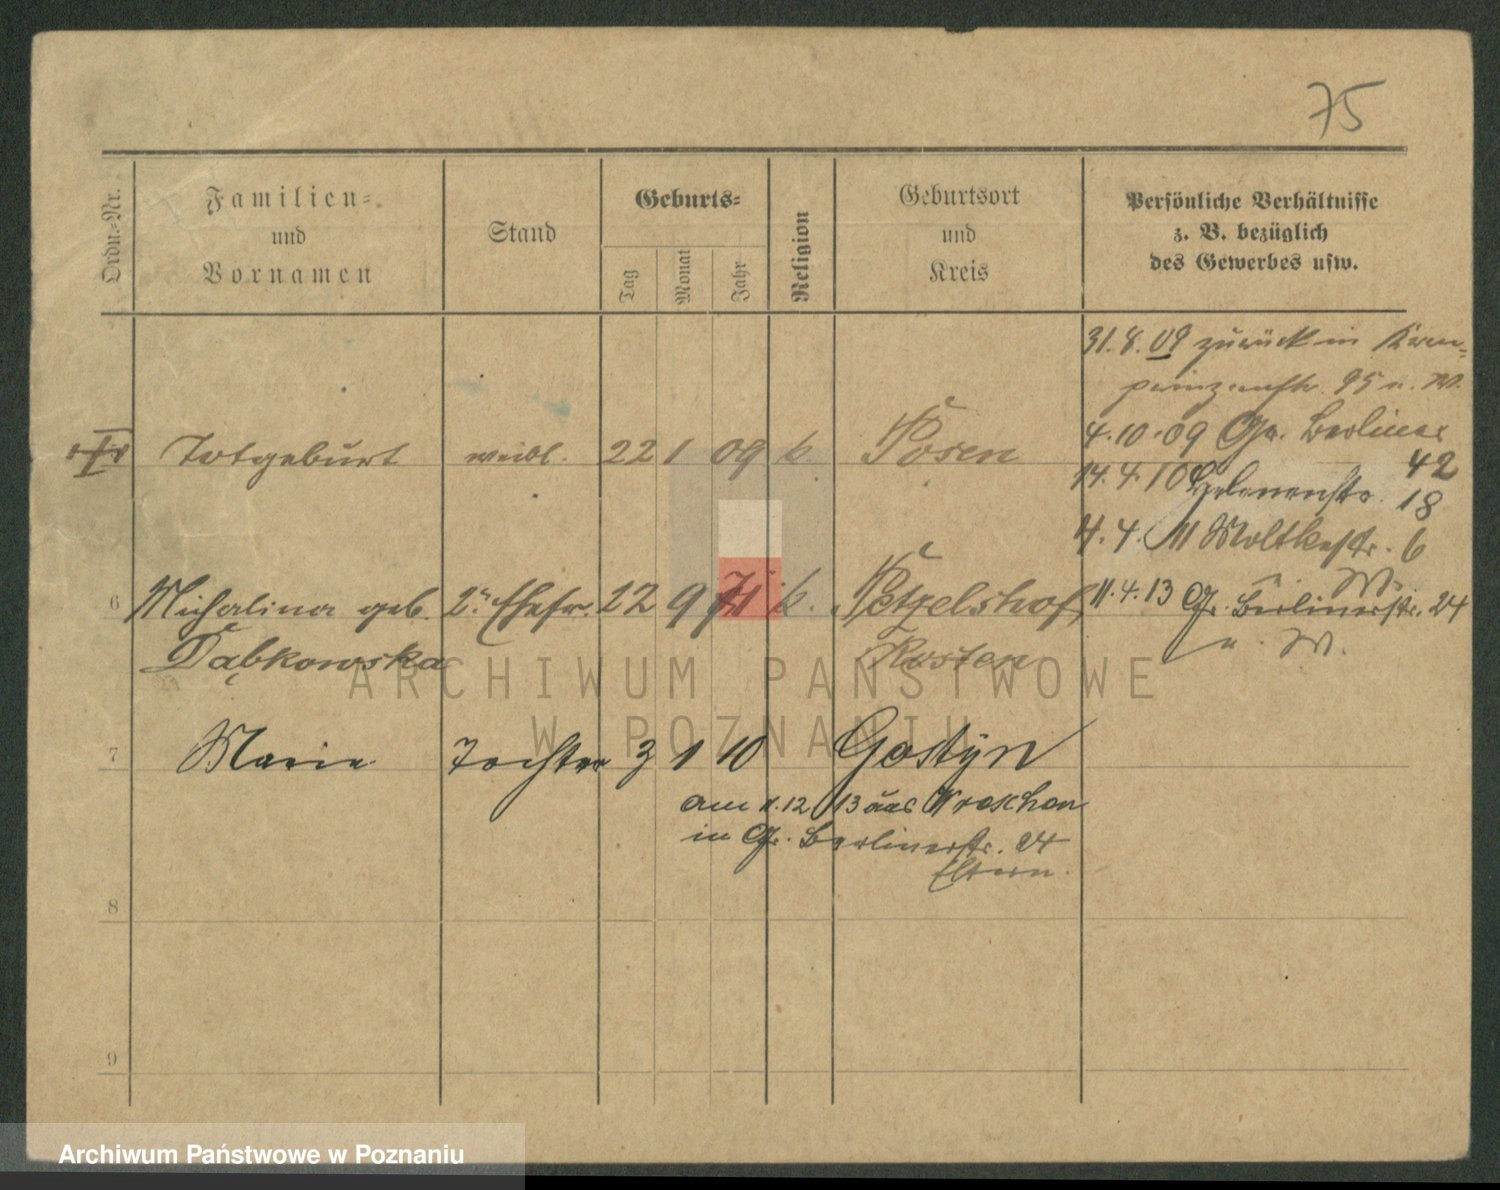 75
Ordn.-Nr.
Familien-
und
Vornamen
Stand
Geburts-
Tag
Monat
Jahr
Religion
Geburtsort
und
Kreis
Persönliche Verhältnisse
z. B. bezüglich
des Gewerbes usw.
31.8.09 zurück in Kron-
prinzenstr. 95 u. W.
4.10.09 Gr. Berliner
42
Totgeburt weibl. 22 1 09 k. Posen
14.4.10 Helenenstr. 18
4.4.11 Moltkestr. 6
W.
6 Michalina geb. 2. Ehefr. 22 9 k. Petzelshof,
11.4.13 Gr. Berlinerstr. 24
u. W.
Dąbkowska Kosten
7 Marie Tochter 3 1 10 Gostyn
am 1.12 13 aus Kroschen
in Gr. Berlinerstr. 24
Eltern.
8
9
ARCHIWUM PAŃSTWOWE
W POZNANIU
Archiwum Państwowe w Poznaniu